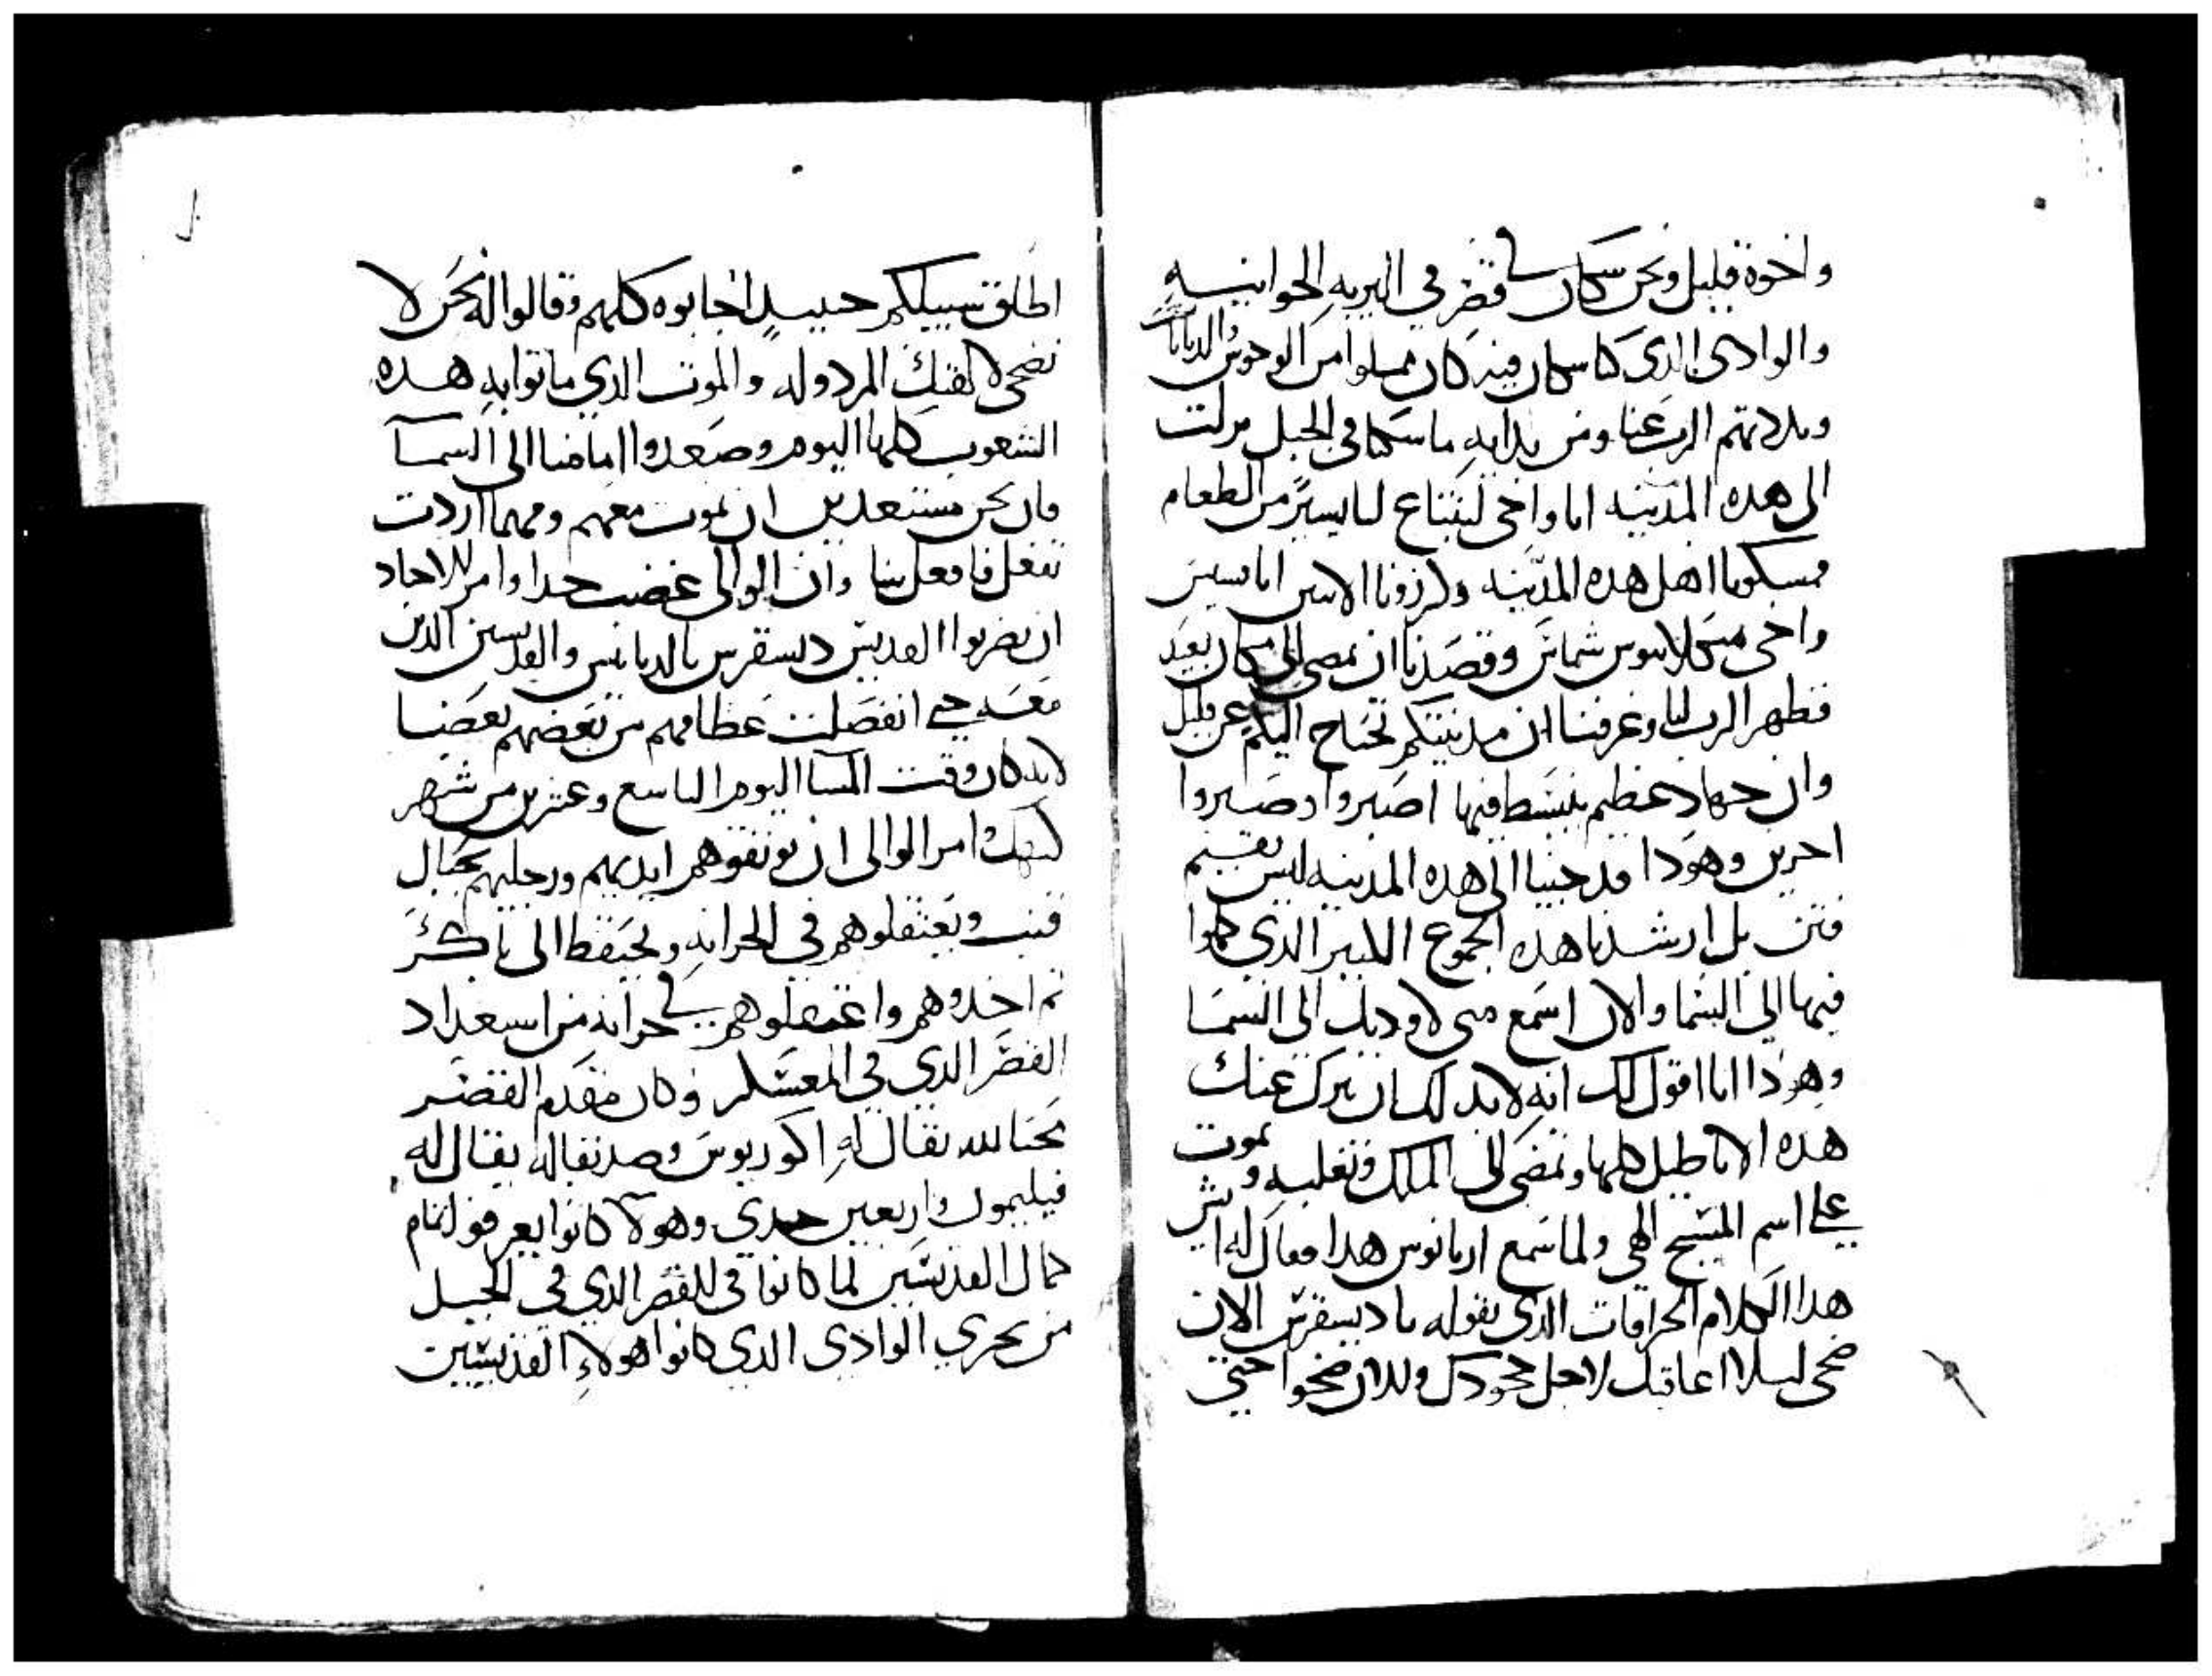 واخوة قليل ونحن سكان في قصر في البريه الجوانيه
والوادي الدي كنا سكان فيه كان مملوا من الوحوش والدبابات
وصلاتهم الرب عنا ومن بدايه ما سكنا في الجبل نزلت
الى هده المدينه انا واخي لنبتاع لنا يسيرًا من الطعام
فمسكونا اهل هده المدينه وكرزونا الاتنين انا قسيس
واخي سكلابيوس شماس وقصدنا ان نمضي الى مكان بعيد
فظهر الرب لنا وعرفنا ان مدينتكم تحتاج اليكم عن قليل
وان جهاد عظيم ينبسط فيها اصبروا وصبروا
اخرين وهودا قد جينا الى هده المدينه ليس نقيم
فتن بل ارشدنا هده الجموع الكبير الدي كملوا
فيها الى السما والان اسمع مني لاوديك الى السما
وهودا انا اقول لك انه لابد لك ان تترك عنك
هده الاباطيل كلها وتمضي الى الملك وتغلبه وتموت
على اسم المسيح الهي ولما سمع اريانوس هدا فقال له ايش
هدا الكلام الخرافات الدي تقوله يا ديسقرس الان
ضحي ليلا اعاقبك لاجل جحودك وللان ضحوا حتى
اطلق سبيلكم حينيدٍ اجابوه كلهم وقالوا له نحن لا
نضحي لالهتك المردوله والموت الدي ماتوا به هده
الشعوب كلها اليوم وصعدوا امامنا الى السما
فان نحن مستعدين ان نموت معهم ومهما اردت
تفعل فافعل بنا وان الوالي غضب جدا وامر للاجناد
ان يضربوا القديس ديسقرس بالدبابيس والقديسين الدين
معه حتى انفصلت عظامهم من بعضهم بعضا
لانه كان وقت المسا اليوم التاسع وعشرين من شهر
كيهك وامر الوالي ان يوتقوهم ايديهم ورجليهم بحبال
قنب ويعتقلوهم في الخزانه ويحتفظ الى باكر
تم اخدوهم واعتقلوهم في خزانه من اسعداد
القصر الدي في المعسكر وكان مقدم القصر
يقال له اكوريوس وصديقا له يقال له
فيليمون واربعين جندي وهولا كانوا يعرفوا تمام
كمال القديسين لما كانوا في القصر الدي في الجبل
من بحري الوادي الدي كانوا هولاءِ القديسين